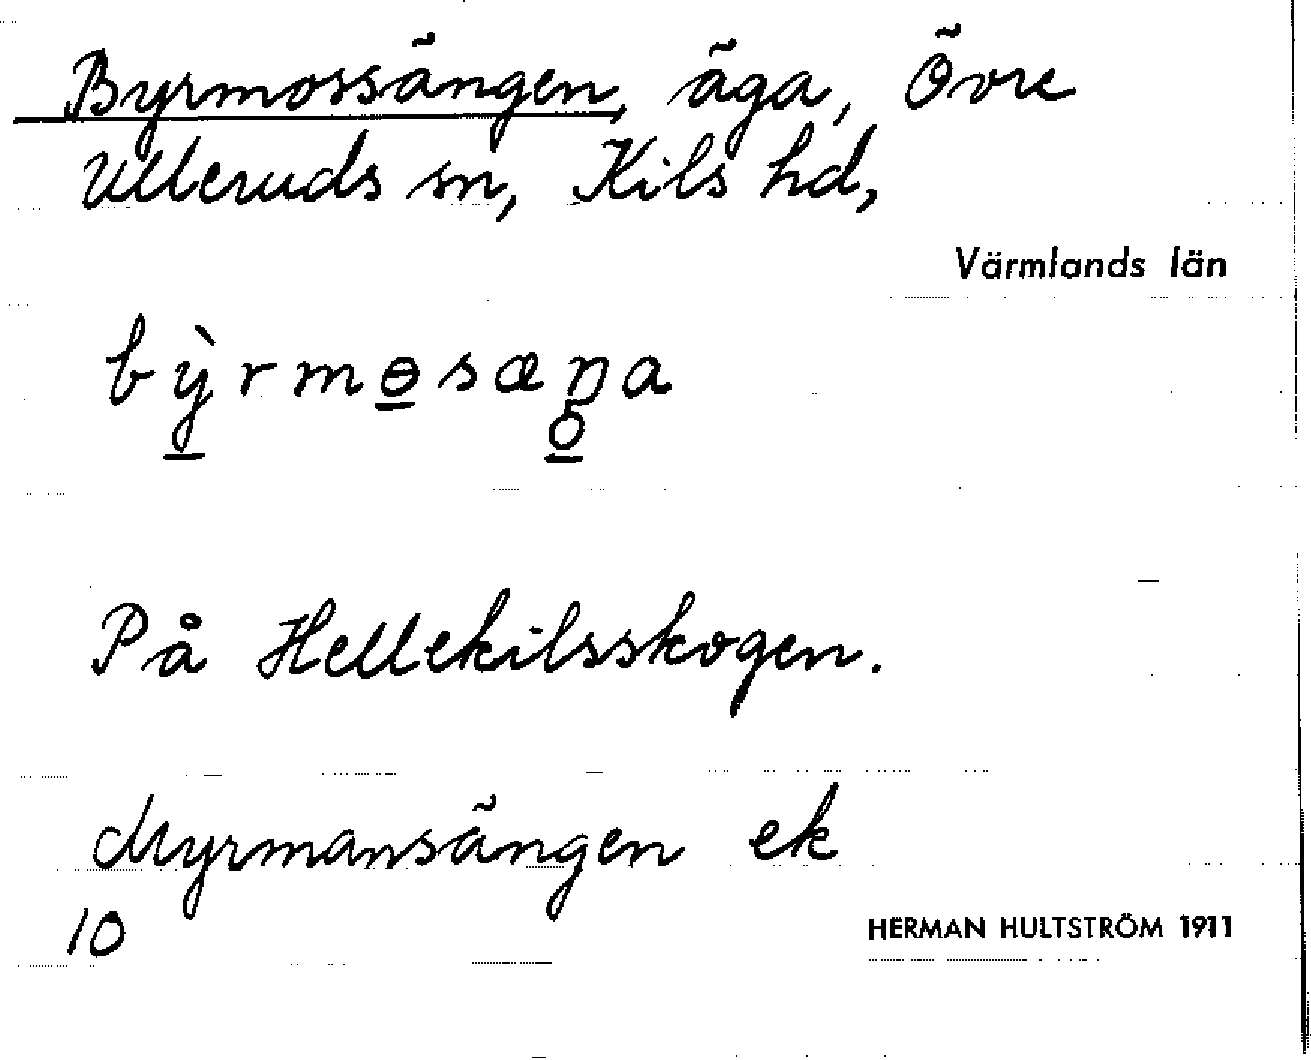 Byrmossängen, äga, Övre
Ulleruds sn, Kils hd,
Värmlands län
bỳrmɵsæŋa
På Hellekilsskogen.
Myrmansängen ek
10
HERMAN HULTSTRÖM 1911